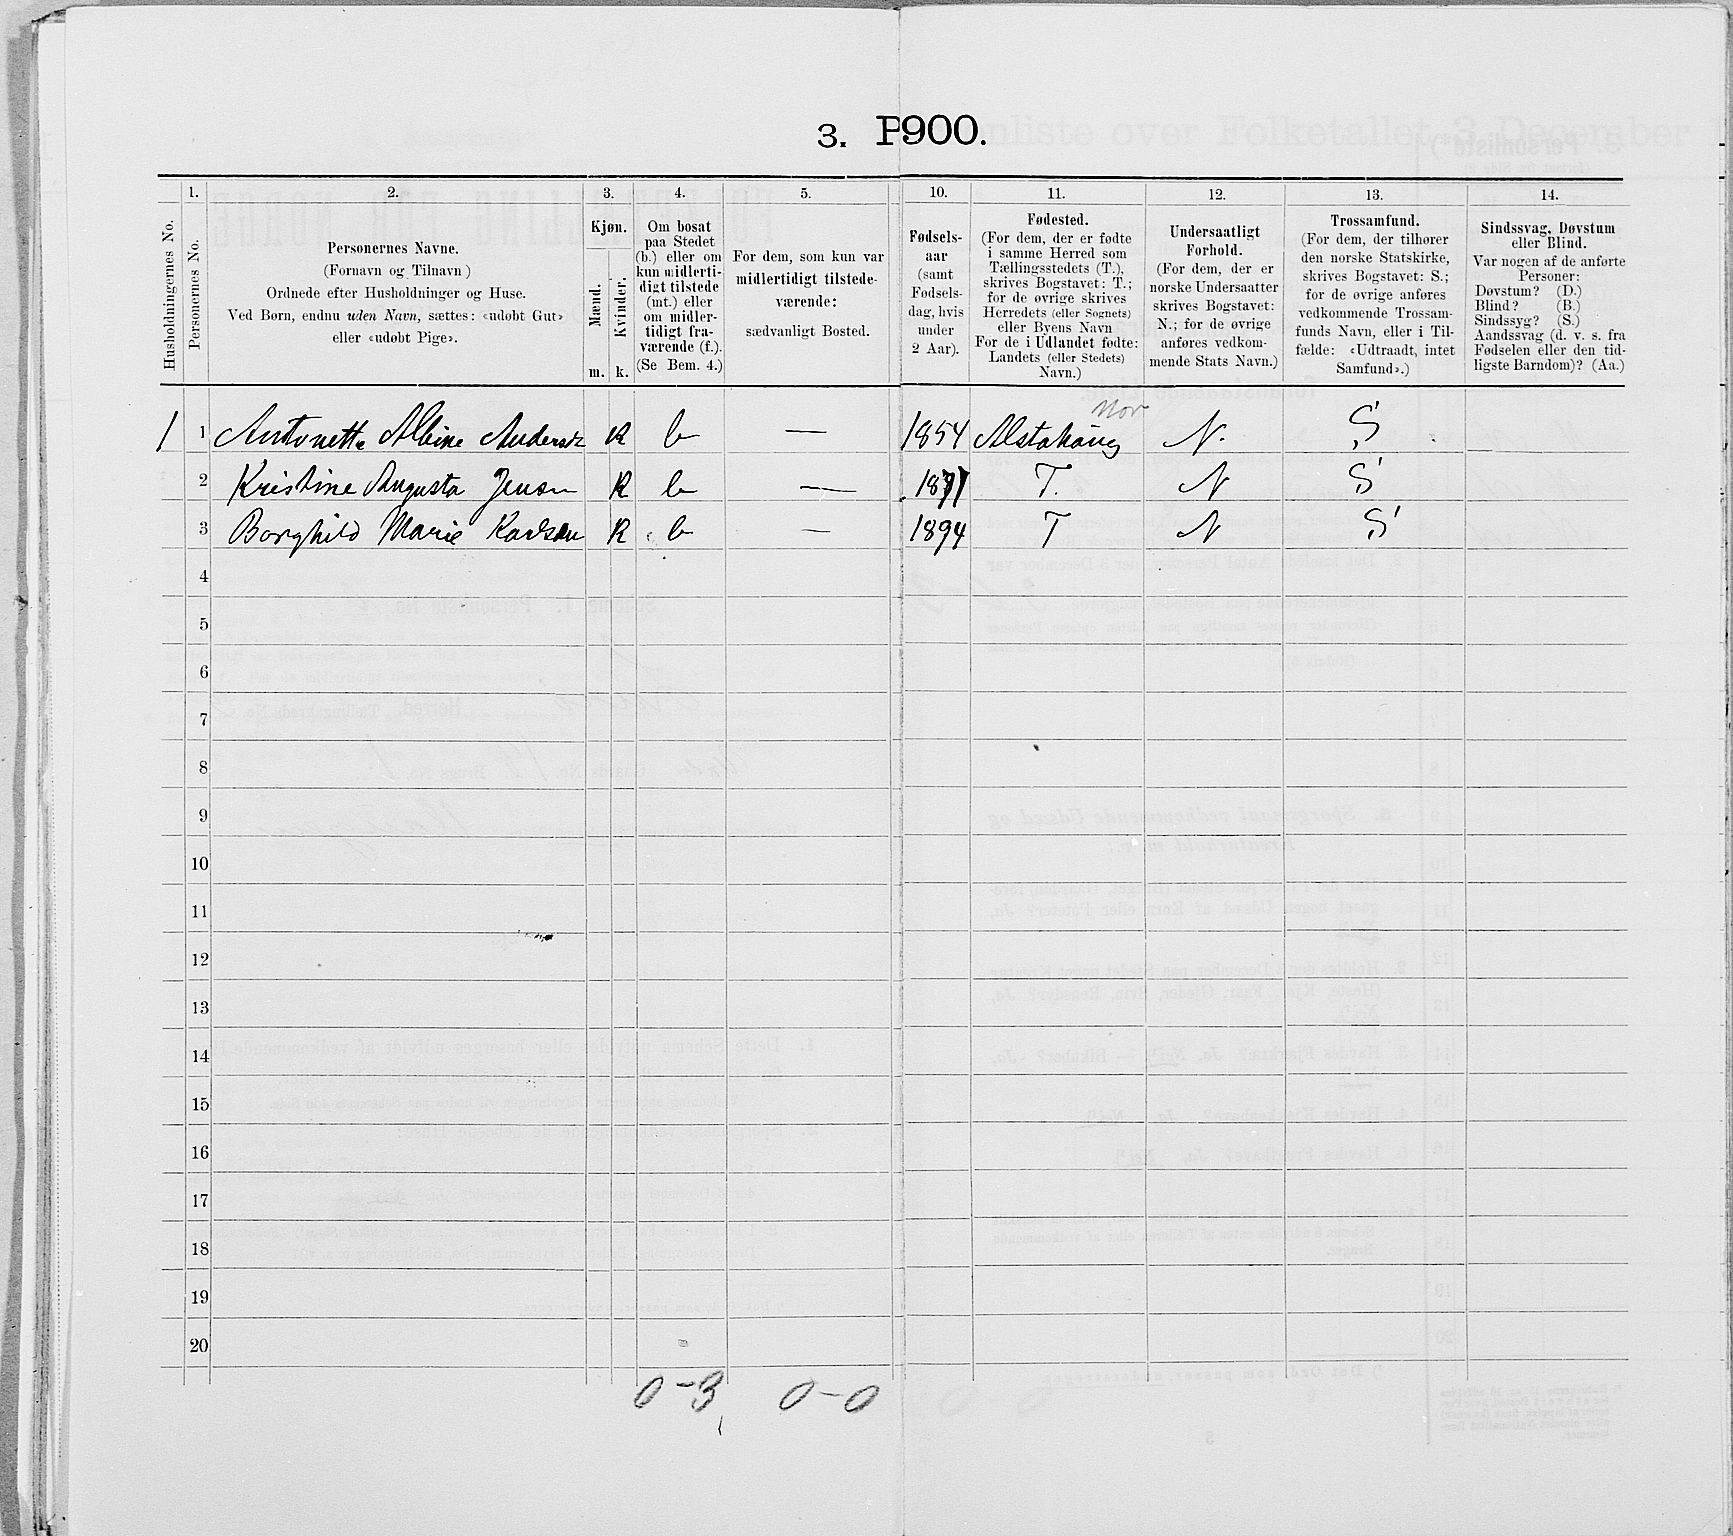 3. P900.
1. 2. 3. 4. 5. 10. 11. 12. 13. 14.
Husholdningernes No.
Personernes No.
Personernes Navne.
(Fornavn og Tilnavn)
Ordnede efter Husholdninger og Huse.
Ved Børn, endnu uden Navn, sættes: «udøbt Gut»
eller «udøbt Pige».
Kjøn.
Mænd.
Kvinder.
m. k.
Om bosat
paa Stedet
(b.) eller om
kun midlerti-
digt tilstede
(mt.) eller
om midler-
tidigt fra-
værende (f.).
(Se Bem. 4.)
For dem, som kun var
midlertidigt tilstede-
værende:
sædvanligt Bosted.
Fødsels-
aar
(samt
Fødsels-
dag, hvis
under
2 Aar).
Fødested.
(For dem, der er fødte
i samme Herred som
Tællingsstedets (T.),
skrives Bogstavet: T.;
for de øvrige skrives
Herredets (eller Sognets)
eller Byens Navn
For de i Udlandet fødte:
Landets (eller Stedets)
Navn.)
Undersaatligt
Forhold.
(For dem, der er
norske Undersaatter
skrives Bogstavet:
N.; for de øvrige
anføres vedkom-
mende Stats Navn.)
Trossamfund.
(For dem, der tilhører
den norske Statskirke,
skrives Bogstavet: S.;
for de øvrige anføres
vedkommende Trossam-
funds Navn, eller i Til-
fælde: «Udtraadt, intet
Samfund».)
Sindssvag, Døvstum
eller Blind.
Var nogen af de anførte
Personer:
Døvstum? (D.)
Blind? (B.)
Sindssyg? (S.)
Aandssvag (d. v. s. fra
Fødselen eller den tid-
ligste Barndom)? (Aa.)
Nor
1 1 Antonette Albine Andersen K b — 1854 Alstahaug N. S
2 Kristine Augusta Jensen K b — 1871 T. N S
3 Borghild Marie Karlsen K b — 1894 T N S
4
5
6
7
8
9
10
11
12
13
14
15
16
17
18
19
20
0-3 0-0